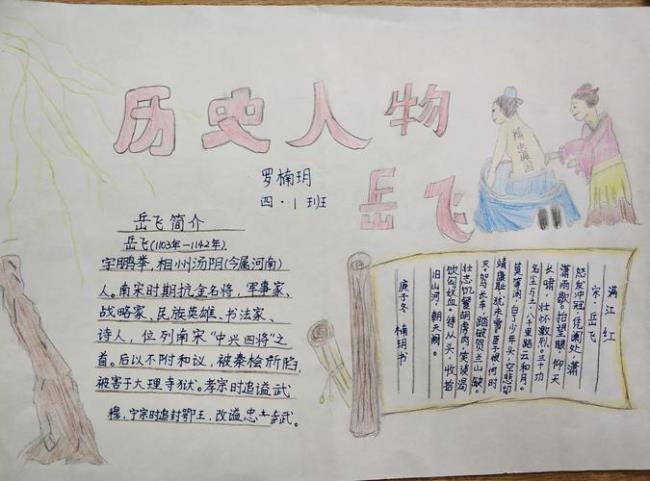 历史人物
岳飞
罗楠玥
四·1班
岳飞简介
岳飞(1103年—1142年)
字鹏举,相州汤阴(今属河南)
人。南宋时期抗金名将,军事家、
战略家、民族英雄、书法家、
诗人,位列南宋“中兴四将”之
首。后以不附和议,被秦桧所陷,
被害于大理寺狱。孝宗时追谥武
穆,宁宗时追封鄂王,改谥忠武。
满江红
宋·岳飞
怒发冲冠,凭阑处、潇
潇雨歇。抬望眼、仰天
长啸,壮怀激烈。三十功
名尘与土,八千里路云和月。
莫等闲、白了少年头,空悲切
靖康耻,犹未雪。臣子恨,何时
灭。驾长车,踏破贺兰山缺。
壮志饥餐胡虏肉,笑谈渴
饮匈奴血。待从头、收拾
旧山河,朝天阙。
庚子冬 楠玥书